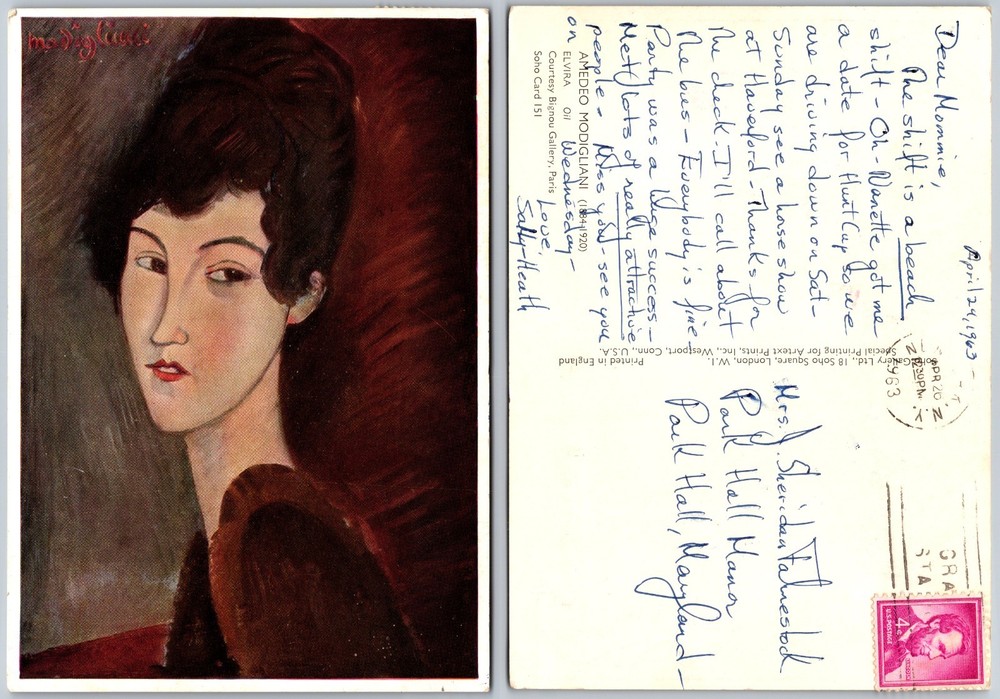 modigliani
April 24, 1963 -
Dear Mommie,
The shift is a beach
shift - Oh - Nanette got me
a date for Hunt Cup so we
are driving down on Sat-
Sunday see a horse show
at Haverford - Thanks for
the check. I'll call about
the bus - Everybody is fine -
Party was a huge success -
Met lots of really attractive
people - Miss you - see you
on Wednesday -
Love,
Sally-Heath
AMEDEO MODIGLIANI (1884-1920)
ELVIRA Oil
Courtesy Bignou Gallery, Paris
Soho Card 151
Soho Gallery Ltd., 18 Soho Square, London, W.1.
Special Printing for Artext Prints, Inc., Westport, Conn., U.S.A.
Printed in England
Mrs. Sheridan Fahnestock
Park Hall Manor
Park Hall, Maryland -
N.Y.
APR 26
1963
GRA
STA
U.S. POSTAGE
4¢